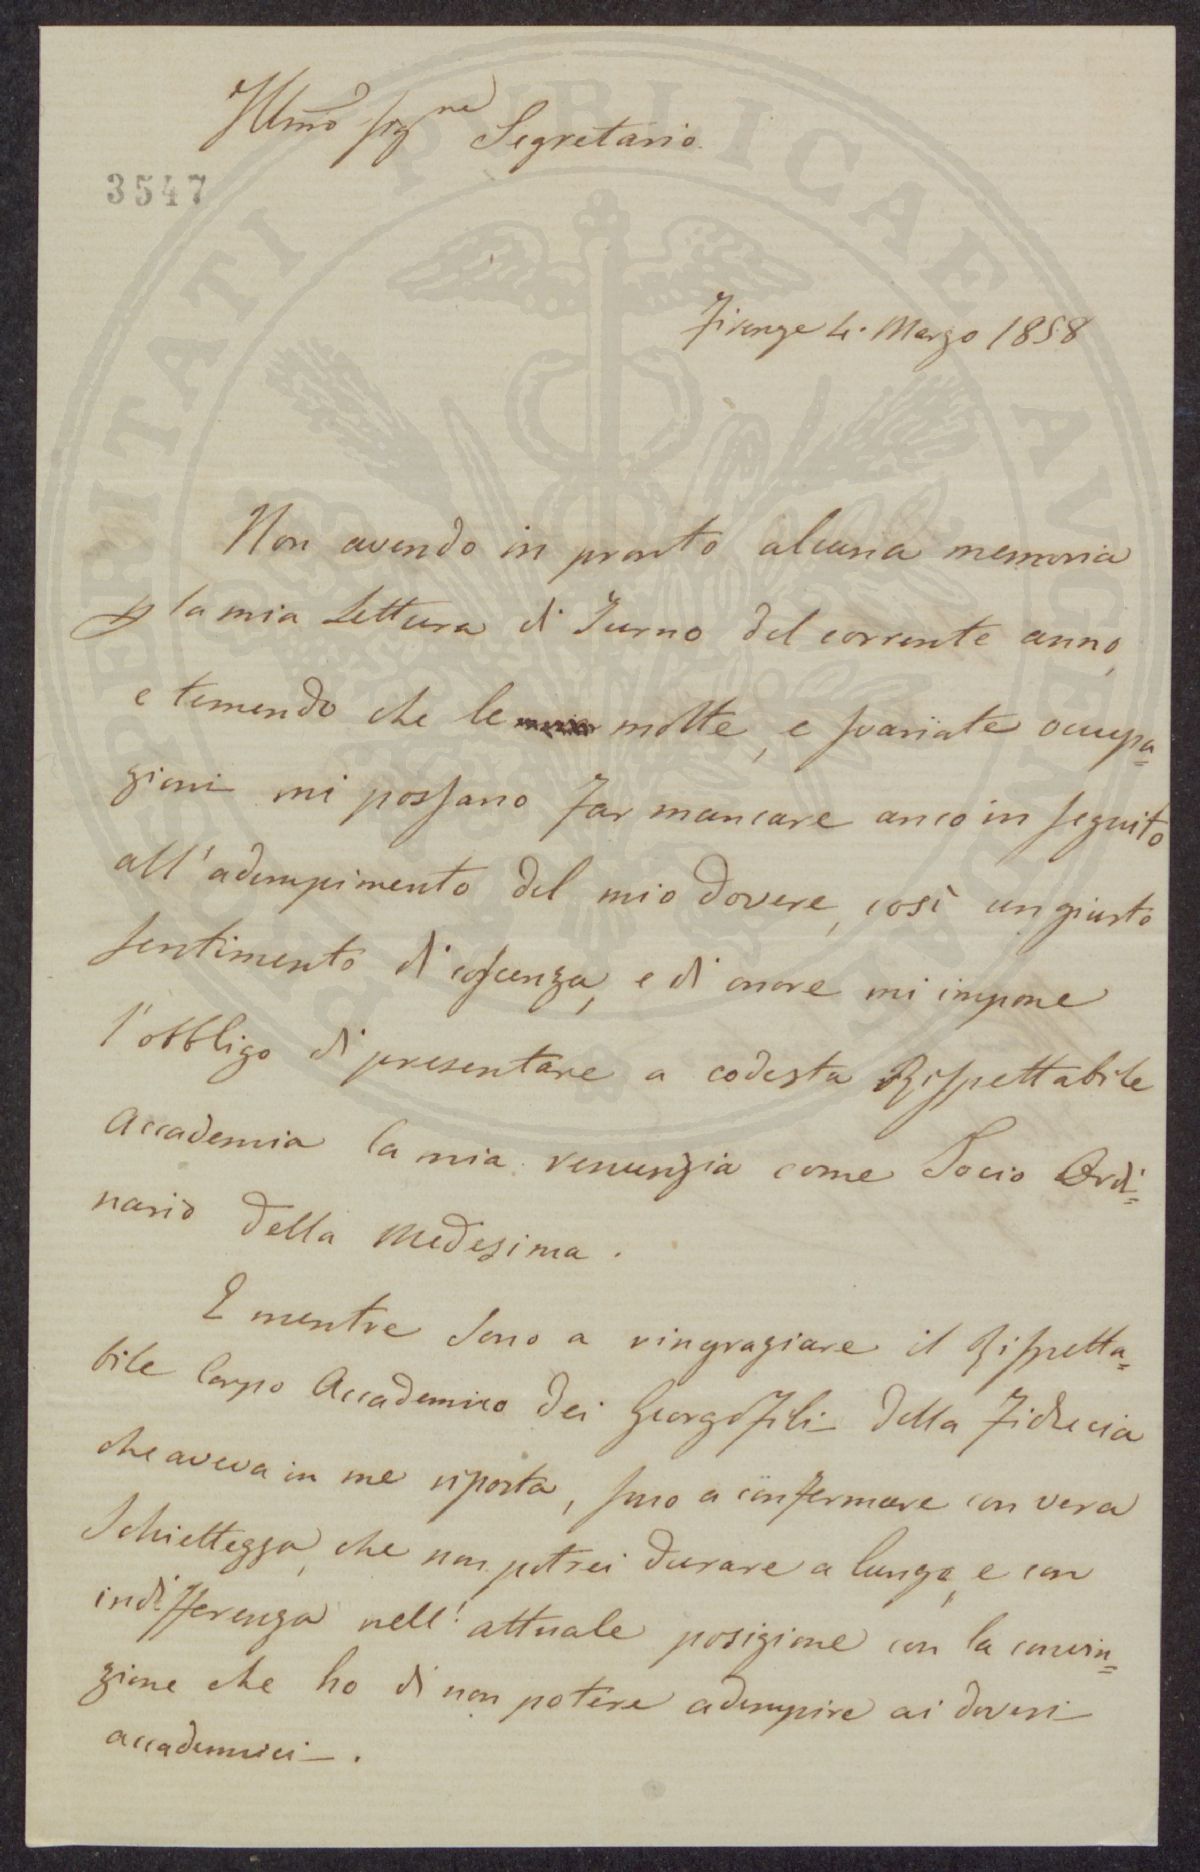 Illmo Sigre Segretario.
3547
Firenze 4. Marzo 1858
Non avendo in pronto alcuna memoria
p la mia Lettura di Turno del corrente anno,
e temendo che le molte, e svariate occupa=
zioni mi possano far mancare anco in seguito
all'adempimento del mio dovere, così un giusto
sentimento di coscenza, e di onore mi impone
l'obbligo di presentare a codesta Rispettabile
Accademia la mia renunzia come Socio Ordi=
nario della Medesima.
E mentre sono a ringraziare il Rispetta=
bile Corpo Accademico dei Georgofili della Fiducia
che aveva in me riposta, sono a confermare con vera
Schiettezza, che non potrei durare a lungo, e con
indifferenza nell'attuale posizione con la convin=
zione che ho di non potere adempire ai doveri
accademici.
PROSPERITATI PUBLICAE AUGENDAE